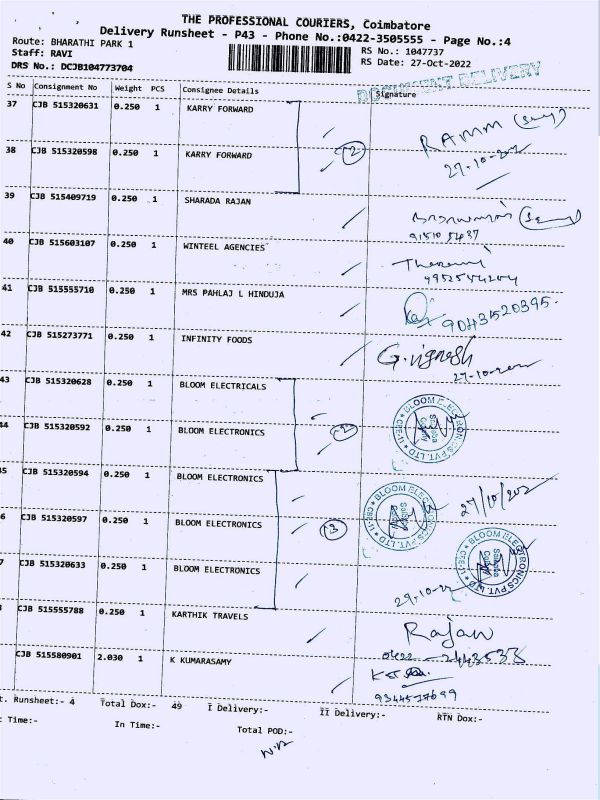 THE PROFESSIONAL COURIERS, Coimbatore
Delivery Runsheet - P43 - Phone No.:0422-3505555 - Page No.:4
Route: BHARATHI PARK 1
RS No.: 1047737
Staff: RAVI
RS Date: 27-Oct-2022
DRS No.: DCJB104773704
DOCUMENT DELIVERY
S No Consignment No Weight PCS Consignee Details Signature
37 CJB 515320631 0.250 1 KARRY FORWARD
RAMM
38 CJB 515320598 0.250 1 KARRY FORWARD 2
39 CJB 515409719 0.250 1 SHARADA RAJAN
40 CJB 515603107 0.250 1 WINTEEL AGENCIES
41 CJB 515555710 0.250 1 MRS PAHLAJ L HINDUJA
9043520395.
42 CJB 515273771 0.250 1 INFINITY FOODS G.vignesh
43 CJB 515320628 0.250 1 BLOOM ELECTRICALS
44 CJB 515320592 0.250 1 BLOOM ELECTRONICS 2
BLOOM ELECTRONICS PVT. LTD
45 CJB 515320594 0.250 1 BLOOM ELECTRONICS
27/10/202
6 CJB 515320597 0.250 1 BLOOM ELECTRONICS 3
BLOOM ELECTRONICS PVT. LTD
7 CJB 515320633 0.250 1 BLOOM ELECTRONICS
BLOOM ELECTRONICS PVT. LTD
CJB 515555788 0.250 1 KARTHIK TRAVELS
Rajan
CJB 515580901 2.030 1 K KUMARASAMY
t. Runsheet:- 4 Total Dox:- 49 I Delivery:- II Delivery:- RTN Dox:-
Time:- In Time:- Total POD:-